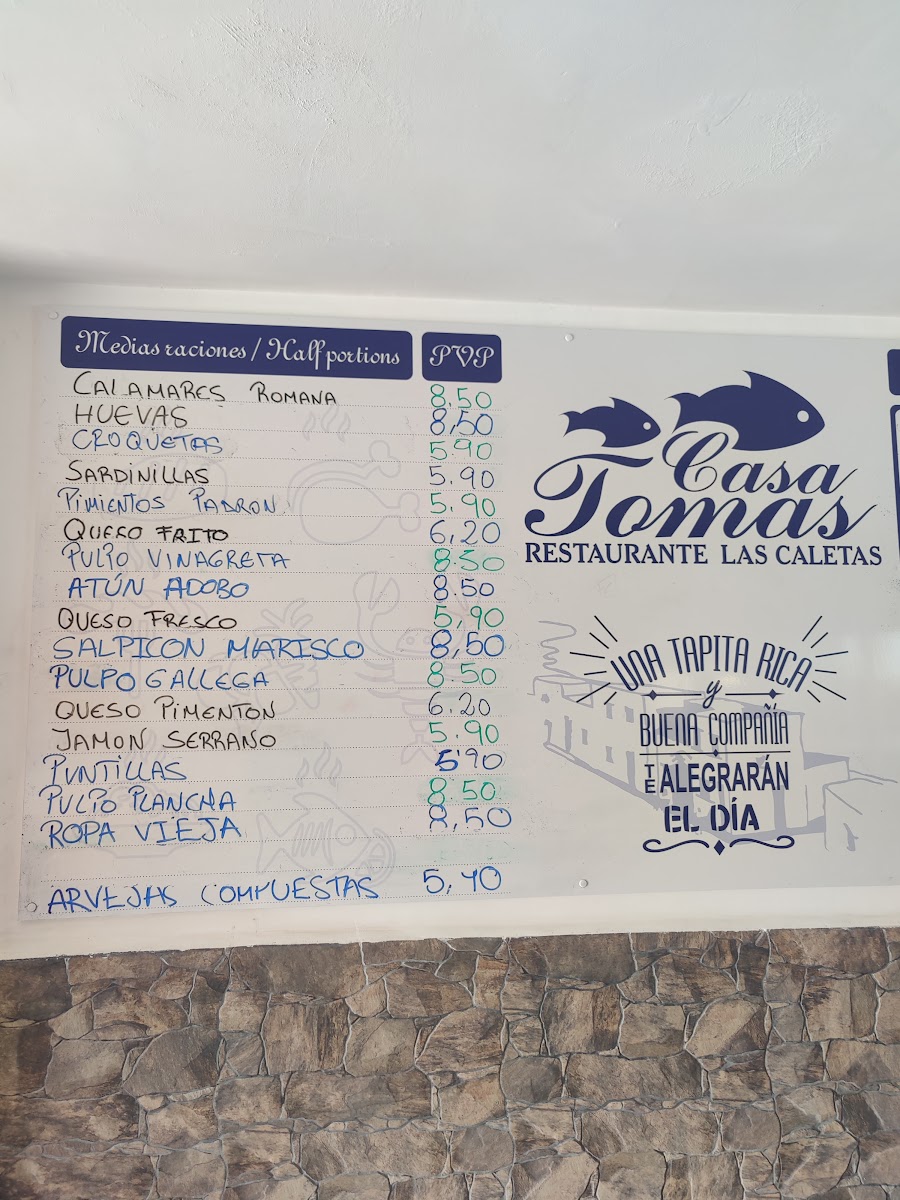 Medias raciones / Half portions PVP
CALAMARES ROMANA 8.50
HUEVAS 8,50
CROQUETAS 5.90
SARDINILLAS 5.90
PIMIENTOS PADRON 5.90
QUESO FRITO 6,20
PULPO VINAGRETA 8.50
ATÚN ADOBO 8.50
QUESO FRESCO 5,90
SALPICON MARISCO 8,50
PULPO GALLEGA 8.50
QUESO PIMENTON 6.20
JAMON SERRANO 5.90
PUNTILLAS 5'90
PULPO PLANCHA 8.50
ROPA VIEJA 8,50
ARVEJAS COMPUESTAS 5,40
Casa
Tomas
RESTAURANTE LAS CALETAS
UNA TAPITA RICA
y
BUENA COMPAÑÍA
TE ALEGRARÁN
EL DÍA